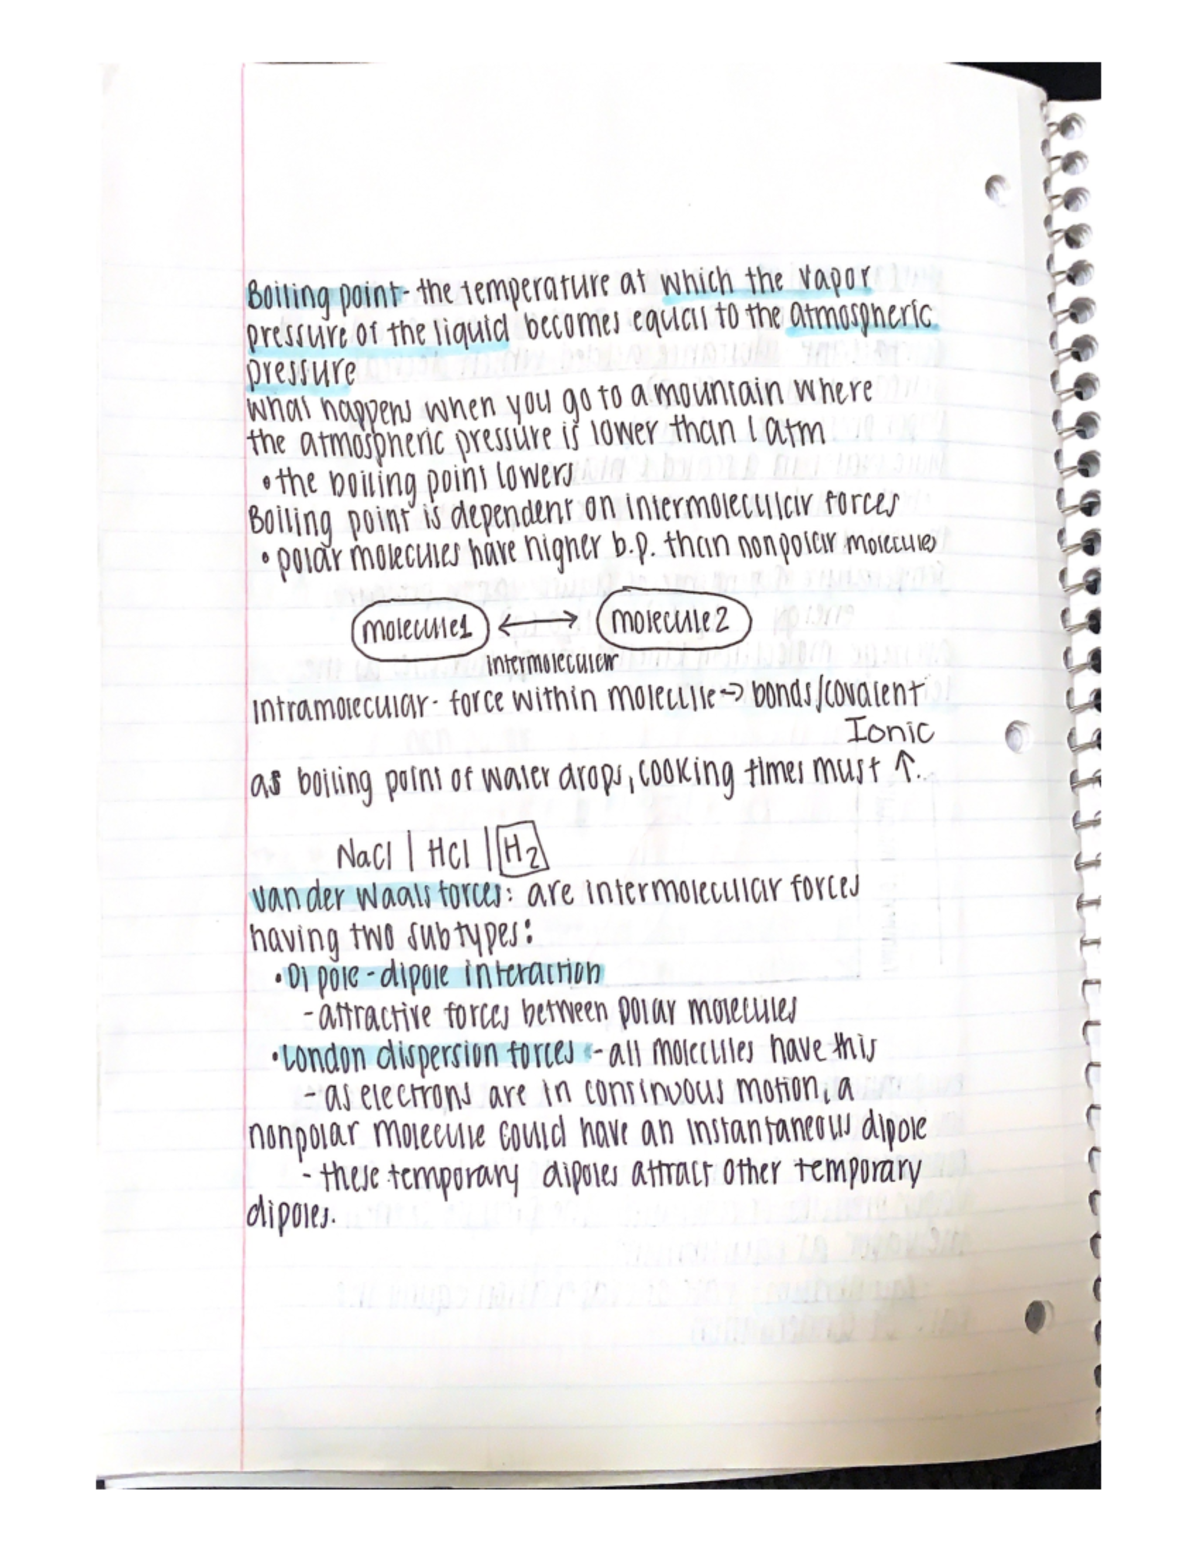 Boiling point- the temperature at which the vapor
pressure of the liquid becomes equal to the atmospheric
pressure
what happens when you go to a mountain where
the atmospheric pressure is lower than 1 atm
• the boiling point lowers
Boiling point is dependent on intermolecular forces
• polar molecules have higher b.p. than nonpolar molecules
molecule1 ⟷ molecule 2
intermolecular
Intramolecular- force within molecule → bonds/covalent
Ionic
as boiling point of water drops, cooking times must ↑.
NaCl | HCl | H₂
van der Waals forces: are intermolecular forces
having two subtypes:
• Dipole-dipole interaction
- attractive forces between polar molecules
• London dispersion forces - all molecules have this
- as electrons are in continuous motion, a
nonpolar molecule could have an instantaneous dipole
- these temporary dipoles attract other temporary
dipoles.